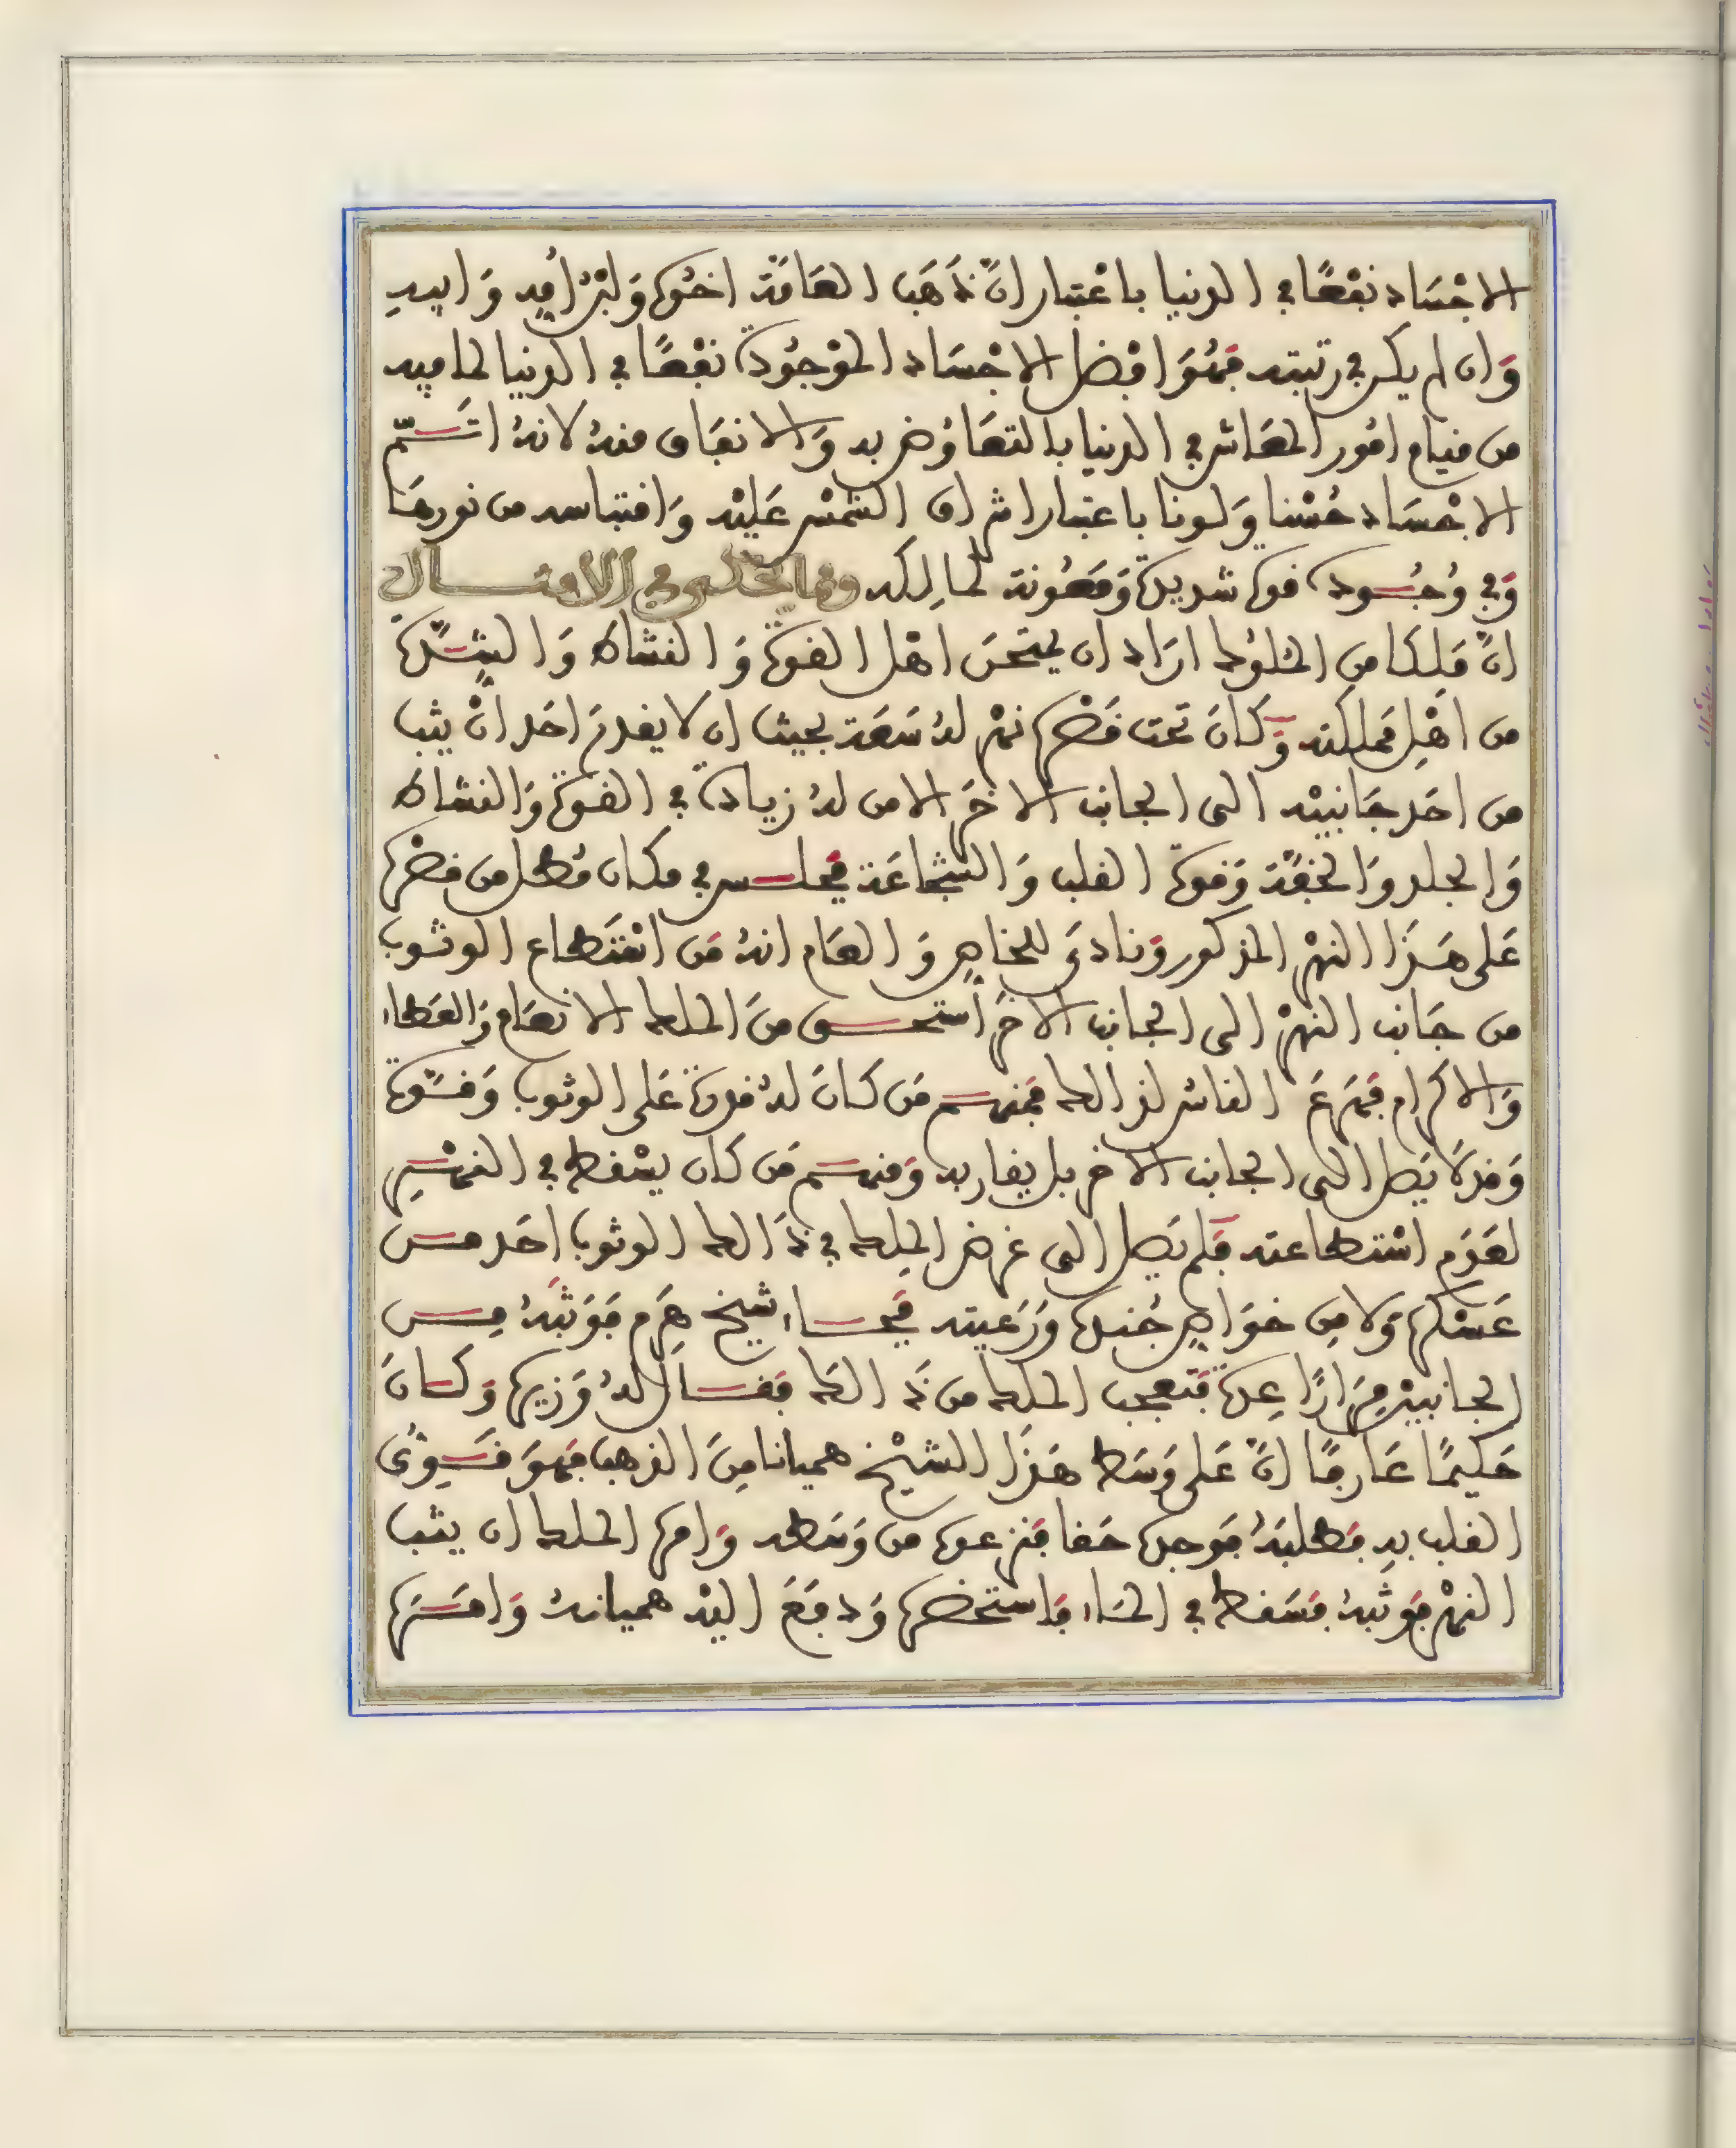 الاجْسَاد نفْعًا في الدنيا باعْتبار انَّ ذَهَب العَامَّة اخُوه وَلبْن أمِه وَابيهِ
وَان لم يكن في رتبته فهُوَ افضل الاجْسَاد الموْجُودة نفْعًا في الدنيا لما فيه
من قيام امُور المعَاش في الدنيا بالتعَاوُض به وَالانفَاق منهُ لانهُ اتَــمّ
الاجْسَاد حُسْنا وَلونا باعتبار اشراق الشمْس عَليْه وَاقتباسه من نورهَا
وَفي وُجُــوده قوة شديدة وَمعُونة لمالِكه ومما يحكى في الامثــال
انَّ مَلكا من الملوُك ارَاد ان يمتحنَ اهْل القوة وَالنشاط وَالشــدَّة
من اهْلِ مَملكته وَكَانَ تحت قصْره نهْر لهُ سَعَة بحيث ان لا يقدرَ احَد انْ يثب
من احَد جَانبيْه الى الجانب الاخَر الا من لهُ زيادة في القوة وَالنشاط
وَالجلد وَالخفّة وَقوة القلب وَالشجاعَة فجلــس في مكان مُطل من قصْره
عَلى هَذَا النهْر المذكور وَنادى للخاص وَالعَام انهُ مَن اسْتَطاع الوثوب
من جَانب النهْر الى الجانب الاخَر أستحــق منَ الملك الانعَام وَالعَطاء
وَالاكرام فهَرعَ الناس لذالك فمنهــم مَن كانَ لهُ قدرة عَلى الوثوب وَقــوة
وَقد لا يَصل الى الجانب الاخر بل يقاربه وَمنهــم مَن كان يسْقط في النهْــر
لعَدَم اسْتطاعته فلم يَصل الى غرض الملِك في ذَالك الوثوب احَد مــن
عَسْكره وَلا مِن خوَاصِ جُنده وَرَعيته فجــاء شيخ هَرِم فوَثبَهُ مِــن
الجانبيْن مِرَارًا عِدة فتعجب الملك من ذَالك فقــال لهُ وَزيره وَكــانَ
حَكيمًا عَارفًا انَّ عَلى وَسَط هَذَا الشيْخ هميانا مِنَ الذهب فهوَ قــوِىُّ
القلب بهِ فطلبَهُ فوَجده حَقا فنزعوه من وَسَطه وَامره الملك ان يثب
النهْر فوَثبهُ فسَقط في المَاء فاستحضره وَدفَعَ اليْه هميانهُ وَامَــرَه